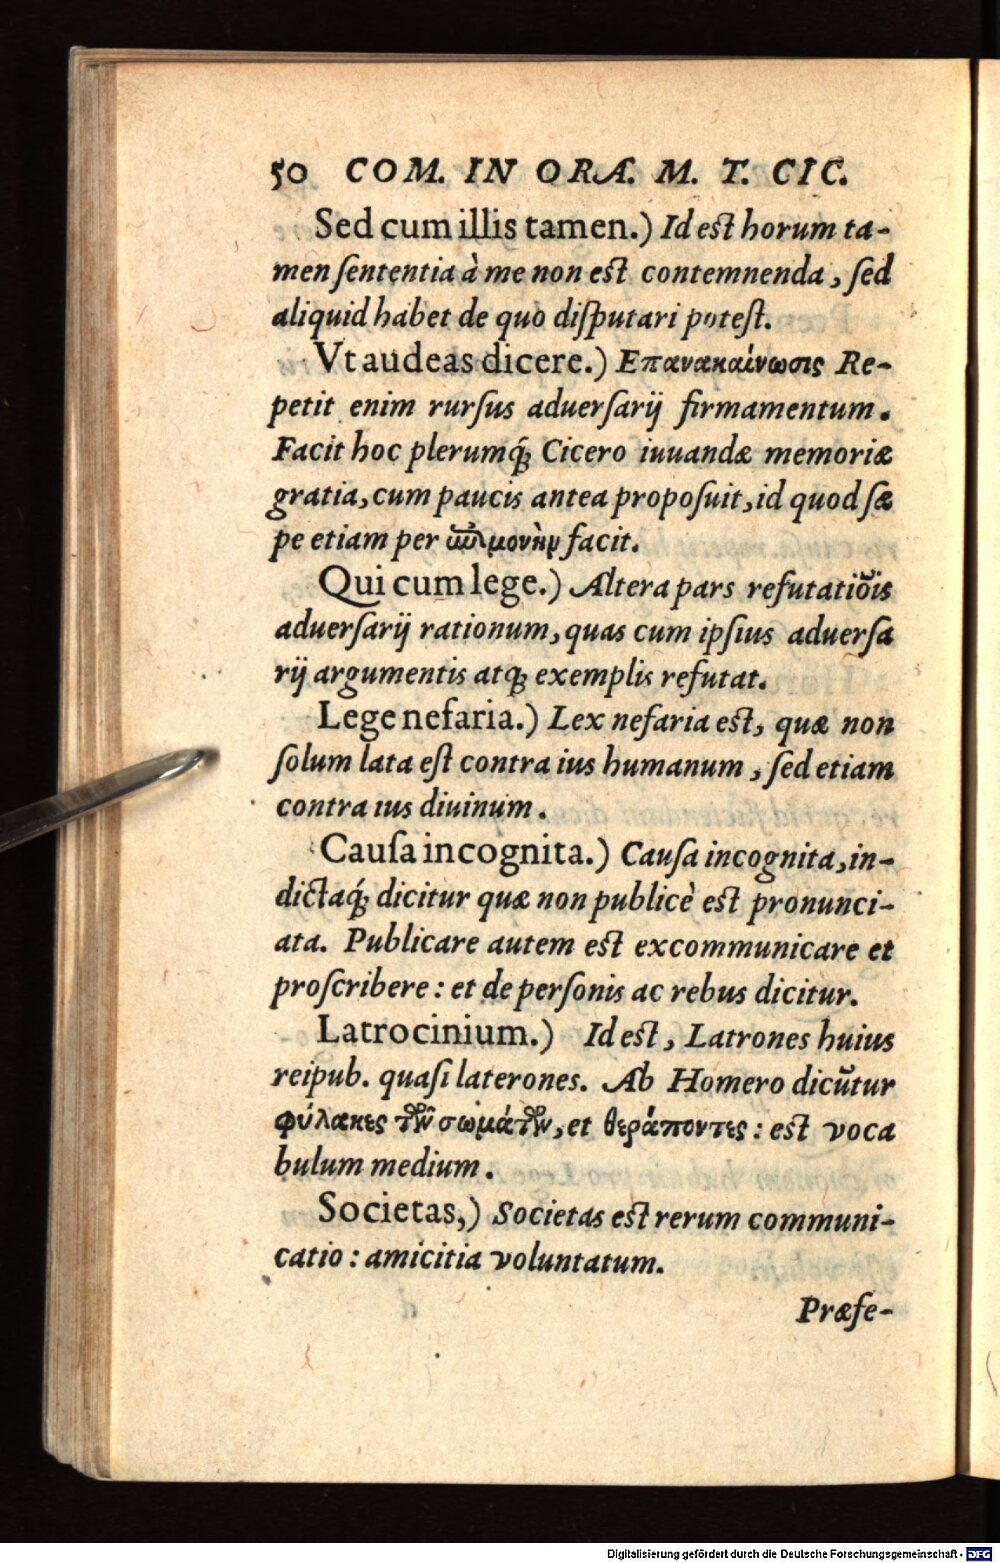 50 COM. IN ORÆ. M. T. CIC.
Sed cum illis tamen.) Id est horum ta-
men ſententia à me non est contemnenda, ſed
aliquid habet de quo diſputari poteſt.
Vt audeas dicere.) Επανακαίνωσις Re-
petit enim rurſus aduerſarij firmamentum.
Facit hoc plerumq́; Cicero iuuandæ memoriæ
gratia, cum paucis antea propoſuit, id quod ſæ
pe etiam per ἐπιμονὴν facit.
Qui cum lege.) Altera pars refutatiōis
aduerſarij rationum, quas cum ipſius aduerſa
rij argumentis atq; exemplis refutat.
Lege nefaria.) Lex nefaria est, quæ non
ſolum lata eſt contra ius humanum, ſed etiam
contra ius diuinum.
Cauſa incognita.) Cauſa incognita, in-
dictaq́; dicitur quæ non publicè est pronunci-
ata. Publicare autem est excommunicare et
proſcribere: et de perſonis ac rebus dicitur.
Latrocinium.) Id est, Latrones huius
reipub. quaſi laterones. Ab Homero dicūtur
φύλακες τῶν σωμάτων, et θεράποντες: est voca
bulum medium.
Societas,) Societas est rerum communi-
catio: amicitia voluntatum.
Præfe-
Digitalisierung gefördert durch die Deutsche Forschungsgemeinschaft - DFG